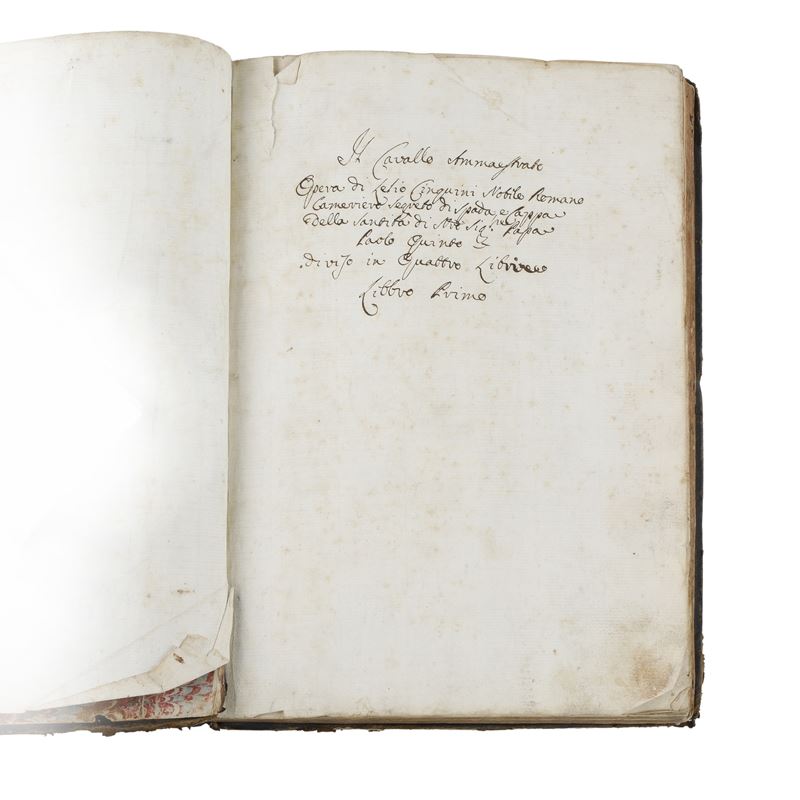 Il Cavallo Ammaestrato
Opera di Lelio Cinquini Nobile Romano
Cameriero Segreto di Spada e Cappa
Della Santità di Nro Sigre Papa
Paolo Quinto
diviso in Quattro Libri
Libbro Primo